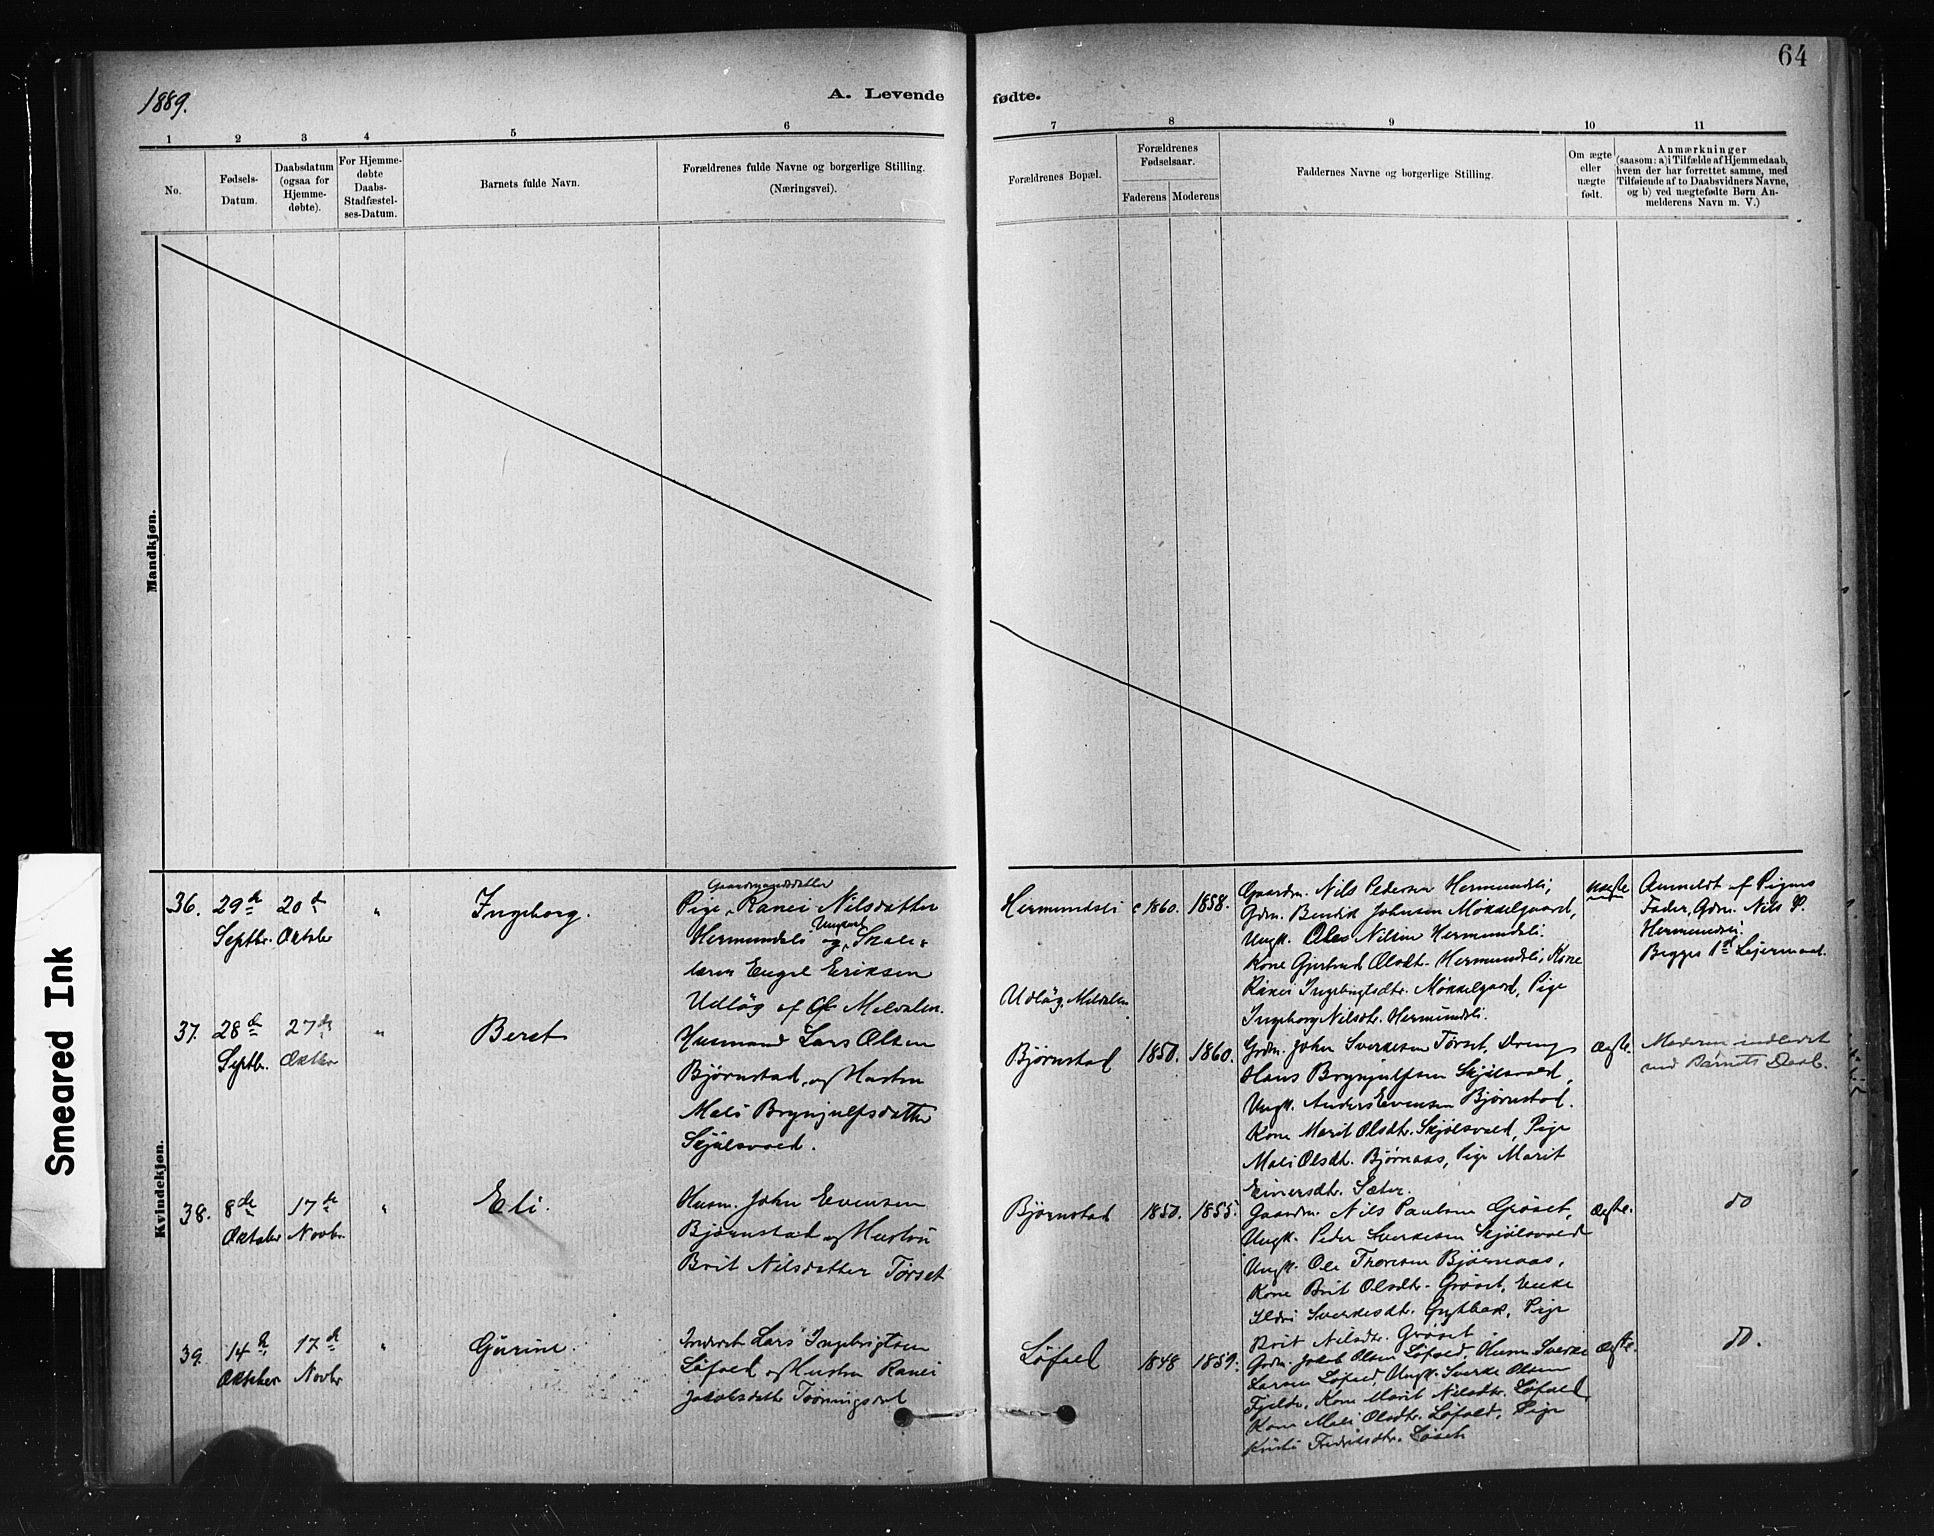 64
1889.
A. Levende
fødte.
1 2 3 4 5 6
7 8 9 10 11
No.
Fødsels-
Datum.
Daabsdatum
(ogsaa for
Hjemme-
døbte).
For Hjemme-
døbte
Daabs-
Stadfæstel-
ses-Datum.
Barnets fulde Navn.
Forældrenes fulde Navne og borgerlige Stilling.
(Næringsvei).
Forældrenes Bopæl.
Forældrenes
Fødselsaar.
Faderens
Moderens
Faddernes Navne og borgerlige Stilling.
Om ægte
eller
uægte
født.
Anmærkninger
(saasom: a) i Tilfælde af Hjemmedaab,
hvem der har forrettet samme, med
Tilføiende af to Daabsvidners Navne,
og b) ved uægtefødte Børn An-
melderens Navn m. V.)
Mandkjøn.
Kvindekjøn.
Smeared Ink
36.
29de
Septbr.
20de
Oktober
"
Ingeborg.
Gaardmandsdatter
Pige Ranei Nilsdatter
Hermundsli og Ungkarl Skole-
lærer Engel Eriksen
Udløg af Melvalen.
Hermundsli
Udløg, Melvalen
1860.
1858.
Gaardm. Nils Pedersen Hermundsli,
Gdm. Bendik Johnsen Mokkelgaard,
Ungk. Ole Nilsen Hermundsli
Kone Gjertrud Olsdtr. Hermundsli, Kone
Ranei Ingebrigtsdtr. Mokkelgaard, Pige
Ingeborg Nilsdtr. Hermundsli.
uægte
Anmeldt af Pigens
Fader, Gdm. Nils P.
Hermundsli.
Begges 1ste Leiermaal.
37.
28de
Septbr.
27de
Oktbr
"
Beret
Husmand Lars Olsen
Bjørnstad, og Hustru
Mali Brynjulfsdatter
Skjølsvold.
Bjørnstad
1850.
1860.
Gdm. John Sverkesen Tørset, Dreng
Hans Brynjulfsen Skjølsvold,
Ungk. Anders Evensen Bjørnstad.
Kone Marit Olsdtr. Skjølsvold, Pige
Mali Olsdtr. Bjørnaas, Pige Marit
Einersdtr. Sæter.
Ægte.
Moderen indledet
ved Barnets Daab.
38.
8de
Oktober
17de
Novbr.
"
Eli.
Husm. John Evensen
Bjørnstad og Hustru
Brit Nilsdatter Tørset
Bjørnstad
1850.
1855.
Gaardm. Nils Paulsen Grøset,
Ungk. Peder Sverkesen Skjølsvold
Ungk. Ole Thoresen Bjørnaas,
Kone Brit Olsdtr. Grøset, Enke
Ildri Sverkesdtr. Pige
Brit Nilsdtr. Grøset
Ægte.
do
39.
14de
Oktober
17de
Novbr
"
Gurine.
Inderst Lars Ingebrigtsen
Løfald og Hustru Ranei
Jakobsdatter Tørningsdal
Løfald
1848
1859.
Gdm. Jakob Olsen Løfald, Husm Sverke
Larsen Løfald, Ungk. Sverke Olsen
Fjelde, Kone Marit Nilsdtr. Løfald
Kone Mali Olsdtr. Løfald, Pige
Kristi Fredriksdtr. Løset
Ægte.
do.